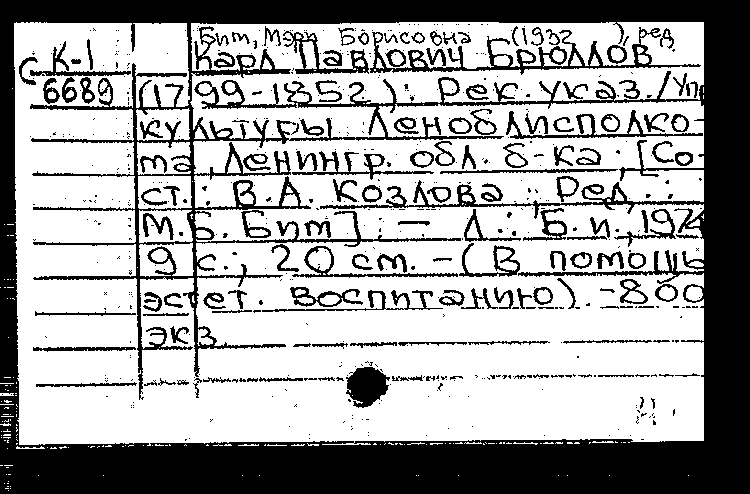 Бит, Мэри Борисовна (1932 ), ред
К-1 Карл Павлович Брюллов
С 6689 (1799-1852): Рек. указ./Упр
культуры Леноблисполко-
ма, Ленингр. обл. б-ка; [Со-
ст.: В.А. Козлова; Ред.:
М.Б. Бит]. — Л.: Б. и., 197
9 с.; 20 см. - (В помощь
эстет. воспитанию). - 800
экз